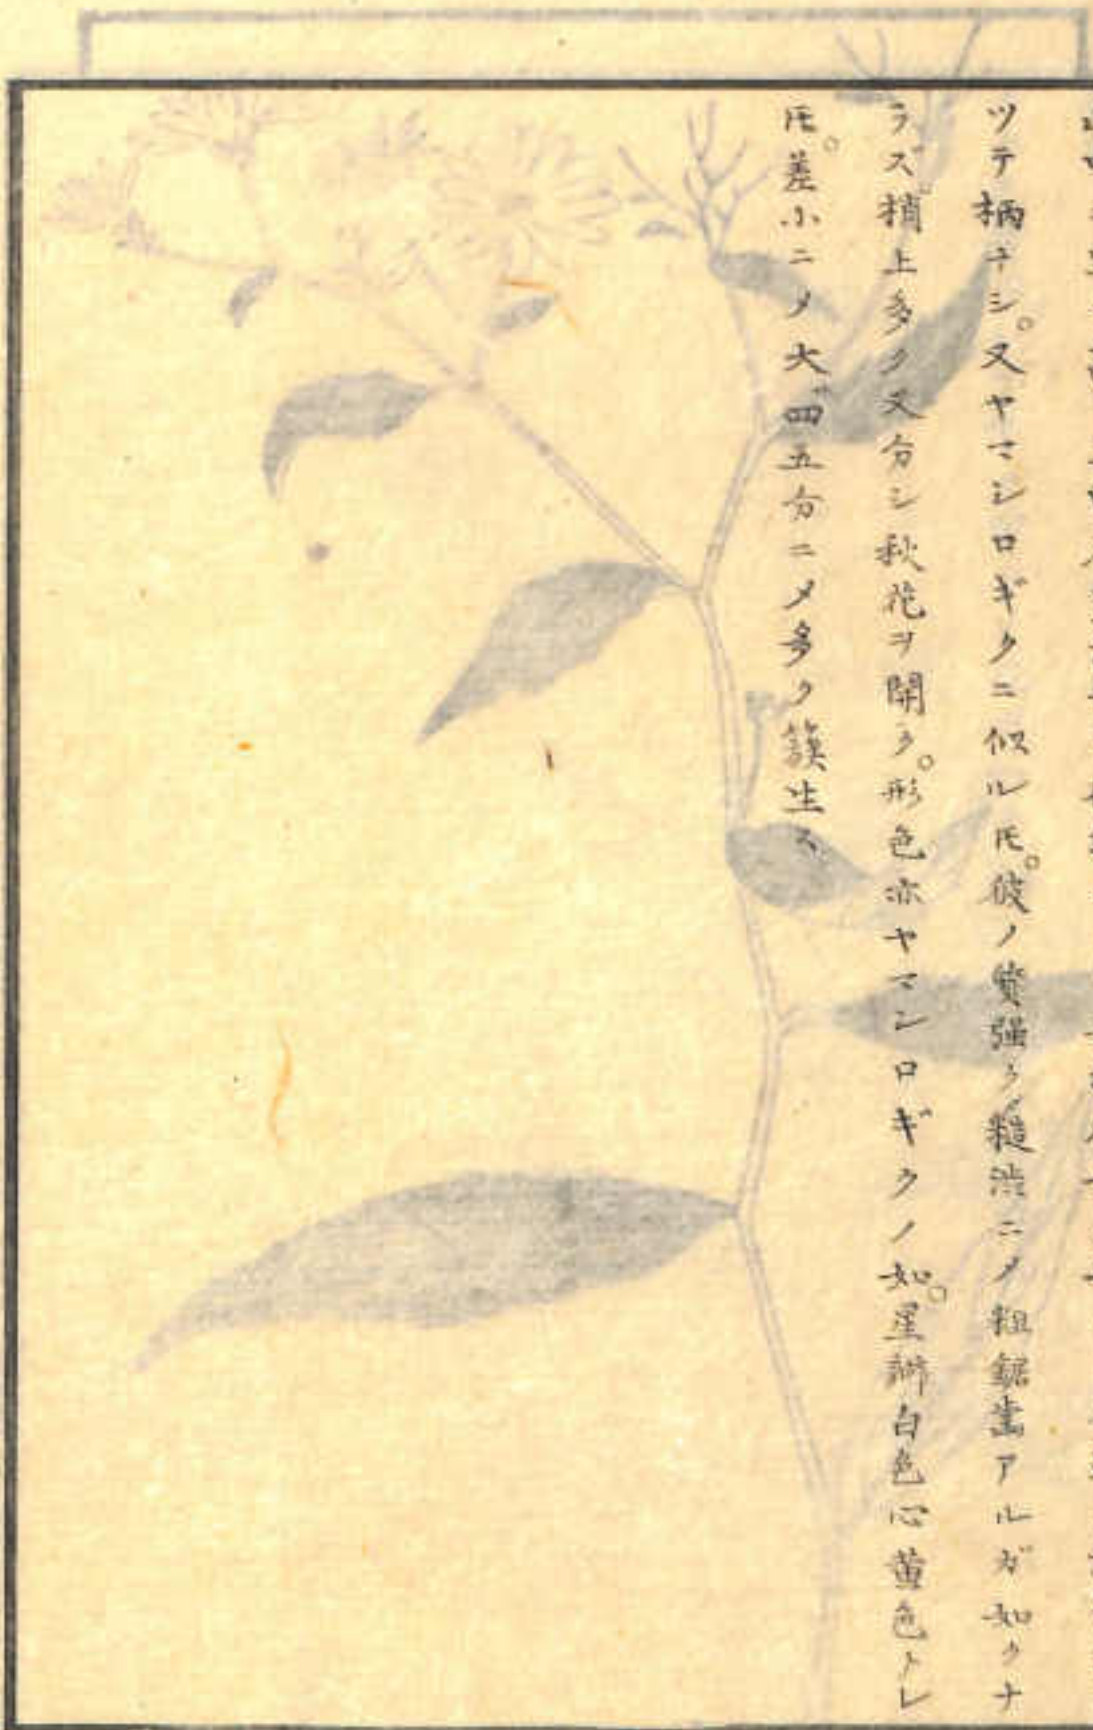 ツテ柄ナシ。又ヤマシロギクニ似ル𪜈。彼ノ質強ク糙渋ニ〆粗鋸歯アルガ如クナ
ラズ。梢上多ク叉分シ秋花ヲ開ク。形色亦ヤマシロギクノ如。星瓣白色心黄色ナレ
𪜈。差小ニ〆大サ四五分ニ〆多ク簇生ス